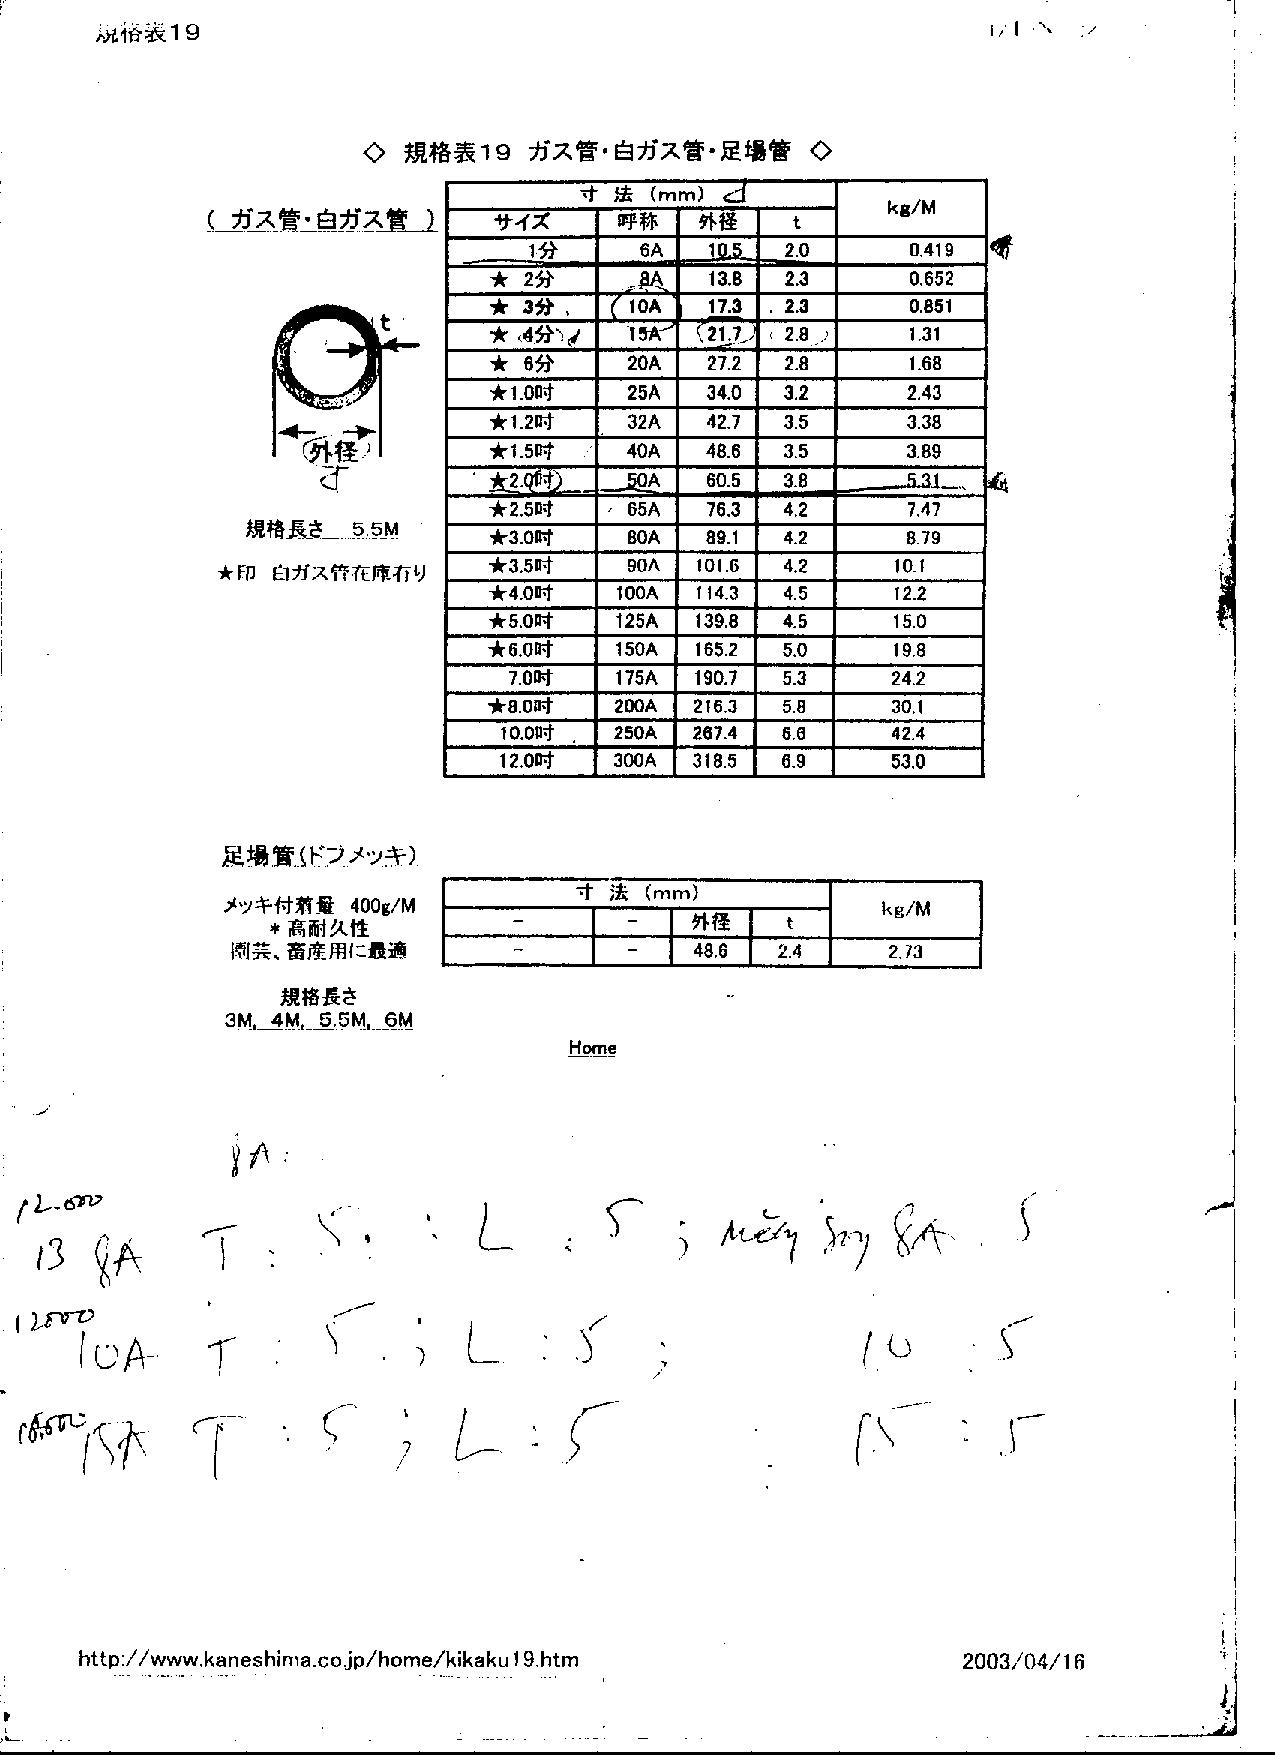 規格表19
◇ 規格表19 ガス管・白ガス管・足場管 ◇
( ガス管・白ガス管 )
寸 法 (mm) d kg/M
サイズ 呼称 外径 t
1分 6A 10.5 2.0 0.419
★ 2分 8A 13.8 2.3 0.652
★ 3分 10A 17.3 2.3 0.851
★ 4分 15A 21.7 2.8 1.31
★ 6分 20A 27.2 2.8 1.68
★1.0吋 25A 34.0 3.2 2.43
★1.2吋 32A 42.7 3.5 3.38
★1.5吋 40A 48.6 3.5 3.89
★2.0吋 50A 60.5 3.8 5.31
★2.5吋 65A 76.3 4.2 7.47
★3.0吋 80A 89.1 4.2 8.79
★3.5吋 90A 101.6 4.2 10.1
★4.0吋 100A 114.3 4.5 12.2
★5.0吋 125A 139.8 4.5 15.0
★6.0吋 150A 165.2 5.0 19.8
7.0吋 175A 190.7 5.3 24.2
★8.0吋 200A 216.3 5.8 30.1
10.0吋 250A 267.4 6.6 42.4
12.0吋 300A 318.5 6.9 53.0
t
外径
d
規格長さ 5.5M
★印 白ガス管在庫有り
足場管(ドブメッキ)
メッキ付着量 400g/M
*高耐久性
園芸、畜産用に最適
規格長さ
3M, 4M, 5.5M, 6M
寸 法 (mm) kg/M
- - 外径 t
- - 48.6 2.4 2.73
Home
8A:
12.000
13 8A T : 5 : L : 5 ; 8A . 5
12000
10A T : 5 ; L : 5 ; 10 : 5
15A T : 5 ; L : 5 15 : 5
http://www.kaneshima.co.jp/home/kikaku19.htm
2003/04/16